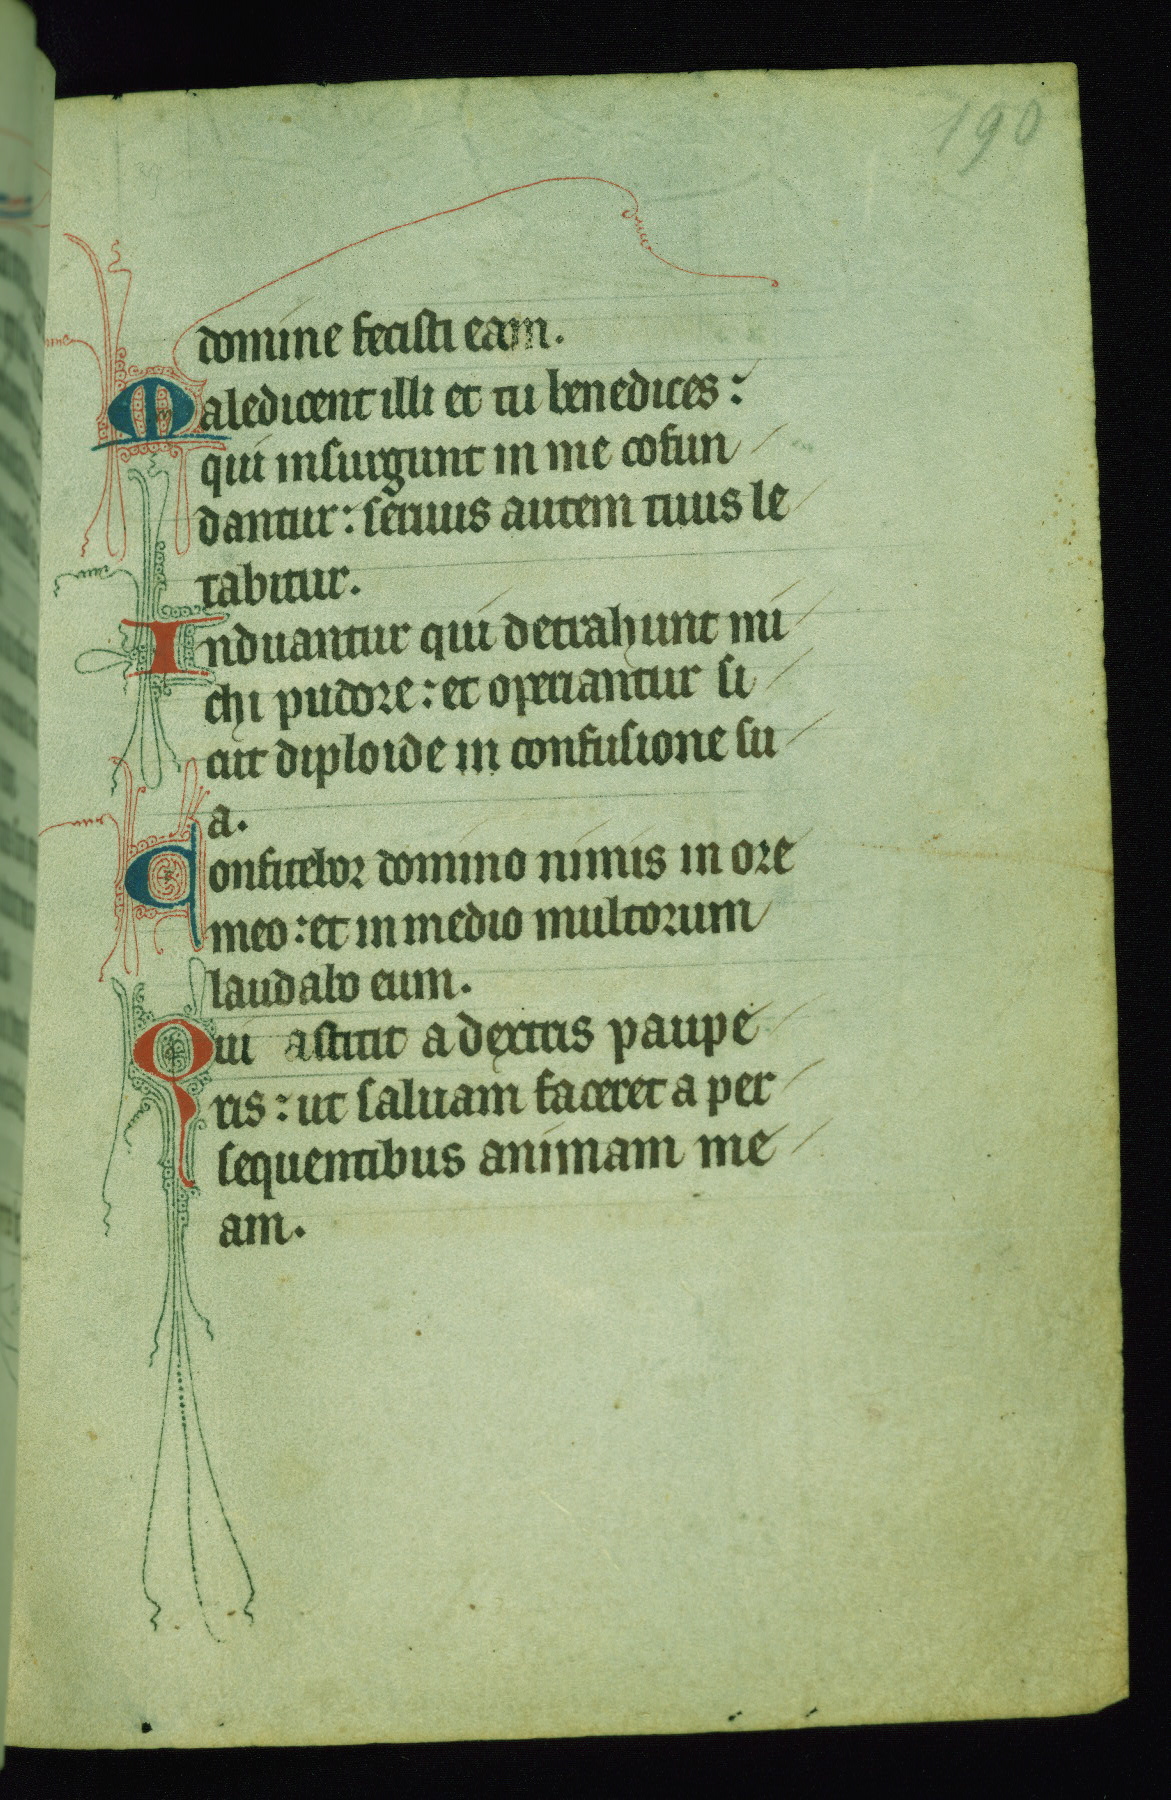 190
domine fecisti eam.
Maledicent illi et tu benedices:
qui insurgunt in me cōfun
dantur: seruus autem tuus le
tabitur.
Induantur qui detrahunt mi
chi pudore: et operiantur si
cut diploide in confusione su
a.
Confitebor domino nimis in ore
meo: et in medio multorum
laudabo eum.
Qui astitit a dextris paupe
ris: ut saluam faceret a per
sequentibus animam me
am.